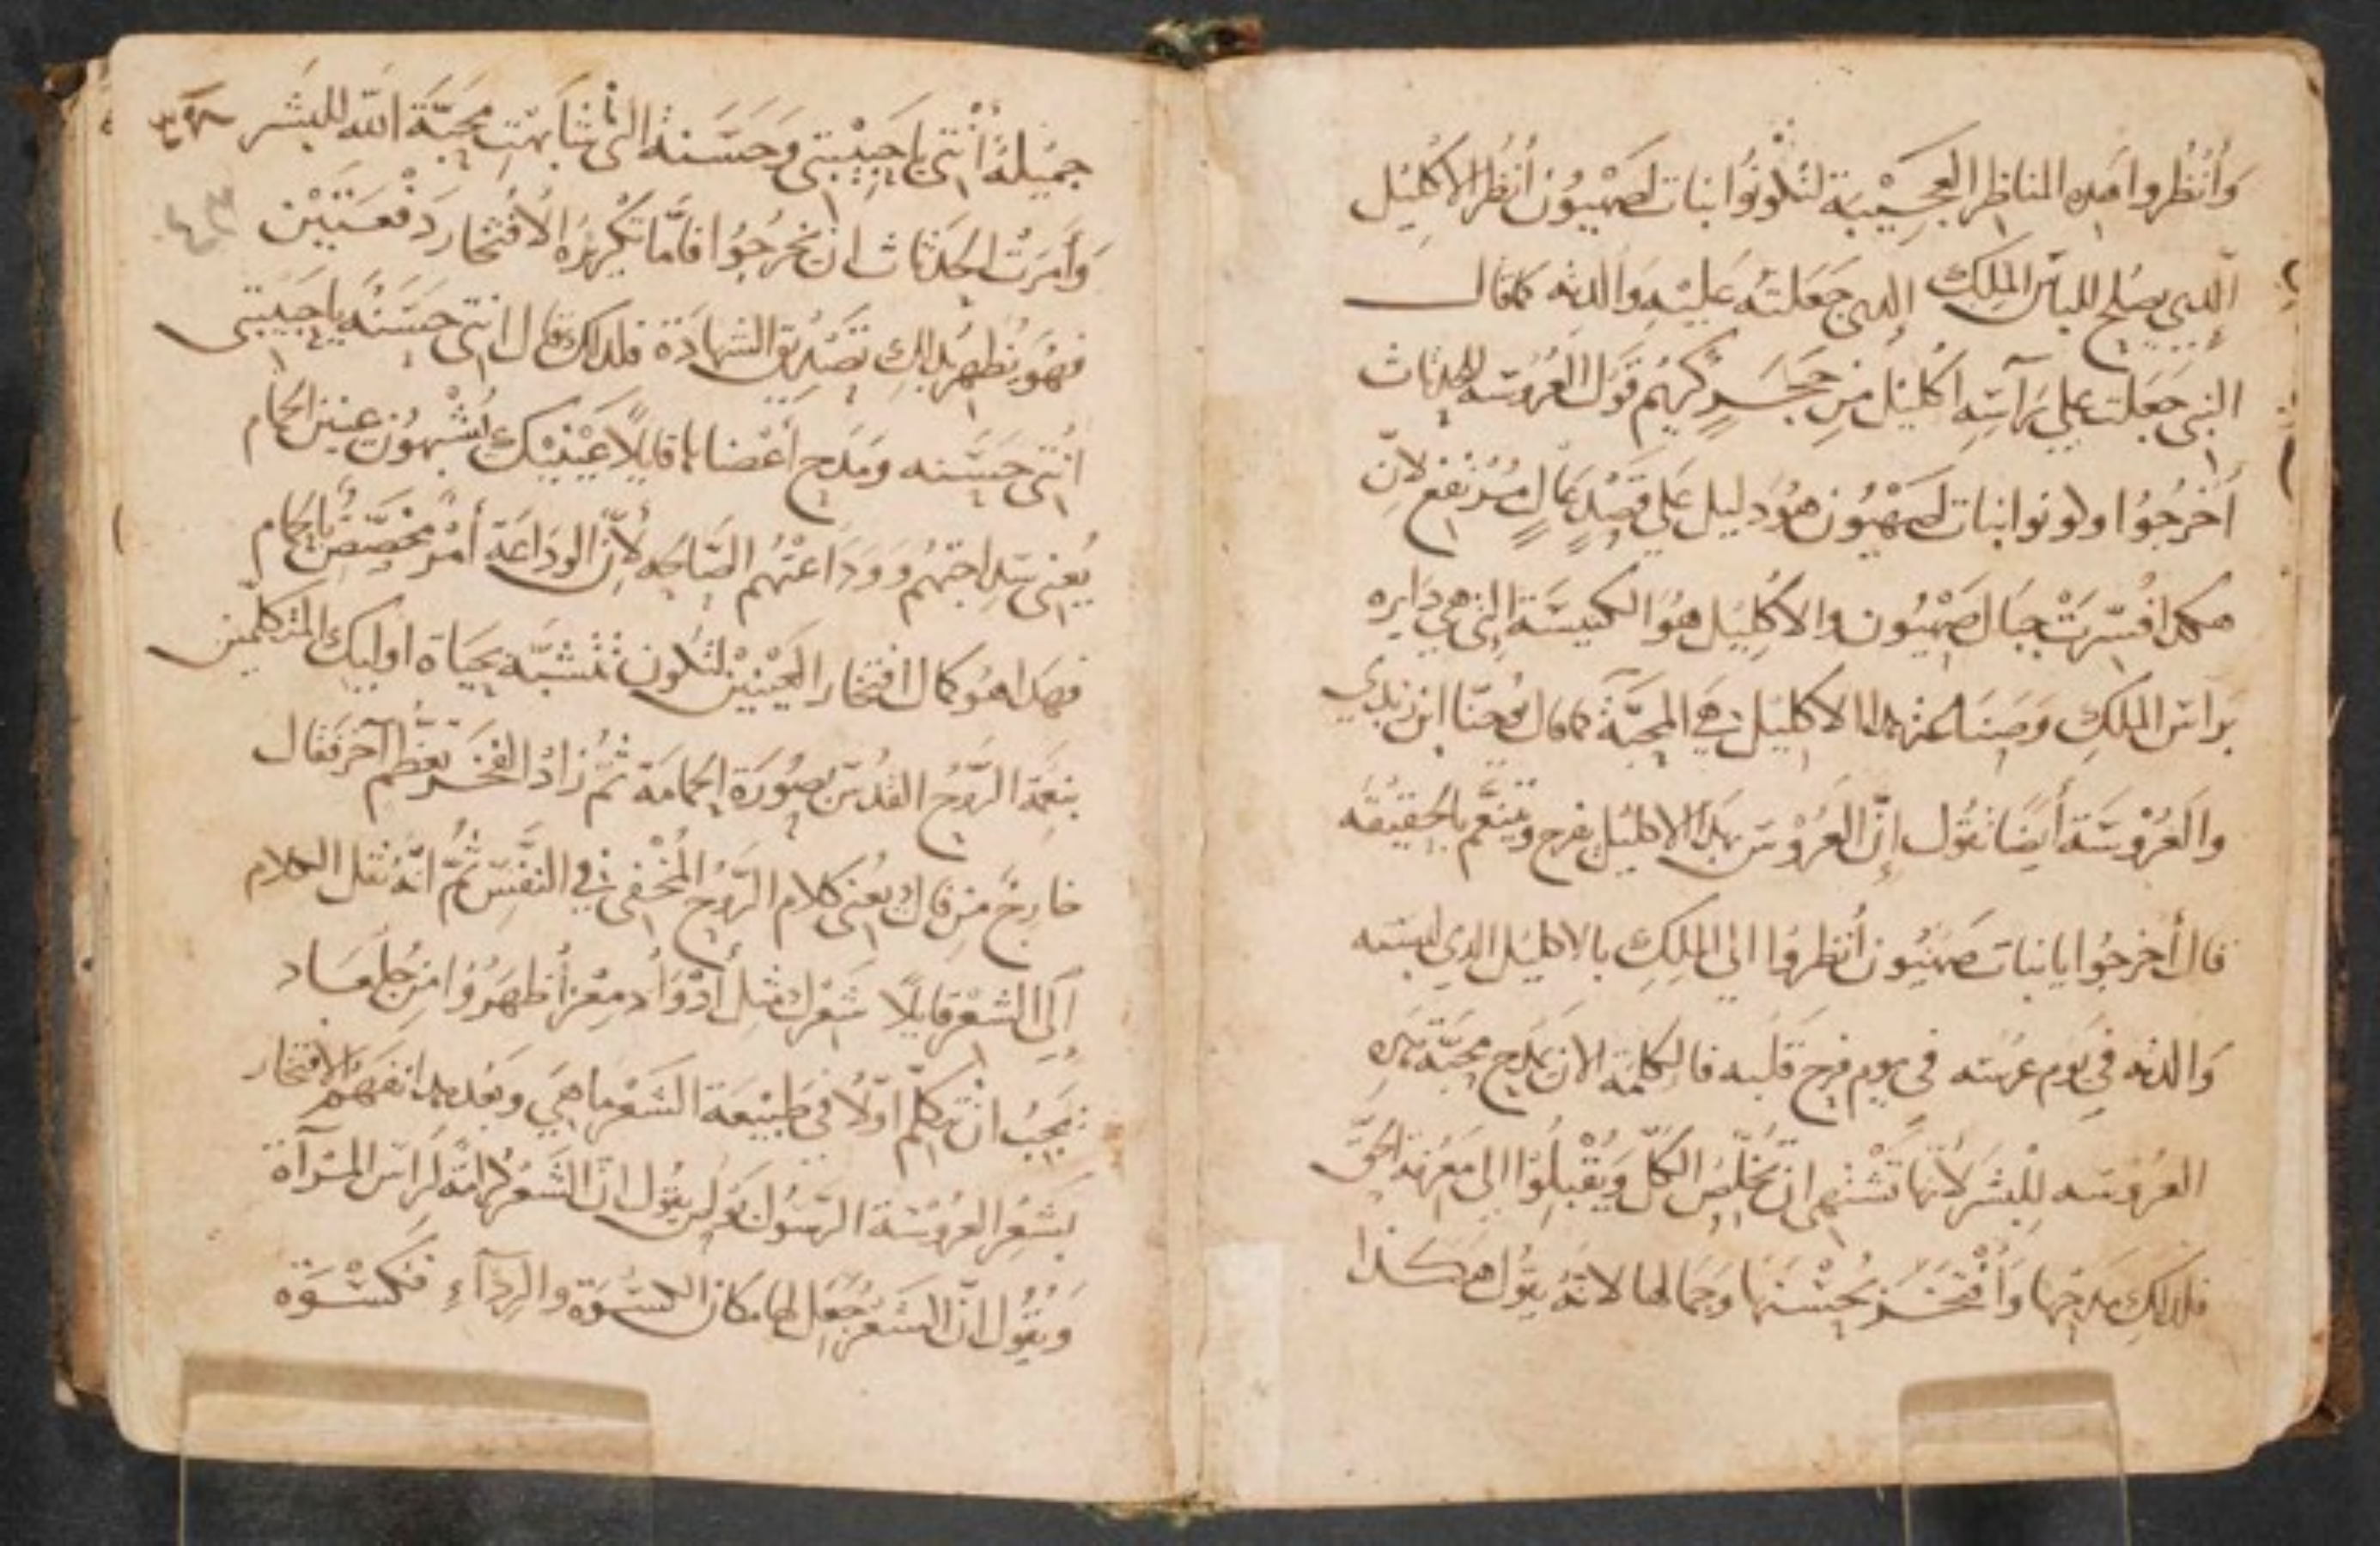 وَأنْظُروا هده المناظِر العَجِيْبَة لتكونُوا بنات لصَهْيُون أنظُر الاكْلِيل
اَلدي يصْلح للباس المَلِكْ الدي جَعَلتهُ عليْهِ وَالدته كما قال
النبي جَعَلتَ علي رَاسِهِ اكليْل مِن حَجَرٍ كَريْم قَول العَرُوسَه للحدثات
أخْرجُوُا وكونوا بنات لصَهْيُون هوُ دَليل عَلي قَصْدٍ عَالٍ مُرْتفع لانّ
هكدا فُسّرَتْ جبَال صَهْيُون والاكْلِيل هُوَ الكنيسَة التي هي دَايره
برَاس المَلِك وَصِنَاعَة هدا الاكليْل هي المحَبَّة كما قال يُوحَنّا ابن زبدي
والعَرُوْسَة أيضَا تقُول إنَّ العَرُوْس بهَدا الاكليْل يفرح ويَتنَعَّم بالحَقيْقَه
قال أخرجُوا يابنات صَهْيُون أنظروُا الي المَلِكِ بالاكليْل الدي لبسَته
وَالدته في يَوْم عرسَه في يوم فرح قلبه فالكلمَة الان يمْدَح محبَّة هَدِهِ
العَرُوْسَه للبشَر لأنهَا تشْتهي ان تُخَلّصُ الكُلّ وَيُقْبلُوُا الي مَعْرفَة الحَقّ
فلدلكِ مدَحهَا وَأفْتخَرَ بحُسْنهَا وَجمالهَا لانهُ يقُول هَكَذا
جميْلةُ أنْتي ياحَبِيْبتي وَحَسَنة التي شابَهَتِ محَبَّة الله للبشَر
وَأمَرَتْ الحَدثات ان يخرجُوُا فامَّا تكْريْرَهُ الافْتخار دَفْعَتَيْن
فهُو يُظهرُ بدالك تصْدِيق الشهادَة فلدلك قال انتي حَسَنَه ياحَبِيبتي
انْتي حَسَنه ومَدح أعْضاها قايلاً عَيْنَيْك يُشْبهُون عينين الحمام
يُعْني سَداجَتهُم وَوَدَاعَتْهُم الصّالحه لأِنّ الودَاعَة أمْرٌ مُخصّصٌ بالحَمام
فهدا هوُ كمال افتخار العَيْنين لتكون تتشَبَّه بحيَاة اوليك المتكلّمين
بنعْمَة الرُّوح القدُس بصُورَة الحمامَة ثمّ زادُ الفخْر تعظُّم آخر فقال
خارِجٌ مِن فاك يُعْني كلام الرُّوح المُخْفي في النَّفس ثمَّ انهُ نقل الكلام
إلَي الشعْر قايلاً شعْرك مثل أدْوَادْ مِعْز أظهَرُوُا مِن جلعَساد
يجبُ ان نتكلّم اولاً في طبيْعَة الشعْر ماهي وبَعْد هدا نفهَمْ الافتخار
بشعْر العرُوْسَة الرسُول بولس يقُول انّ الشعْر كرامَة لرَاس المَرْآة
ويقُول انّ الشعْر جُعَل لها مكان الكسْوَة والردآءِ فكسْوَة